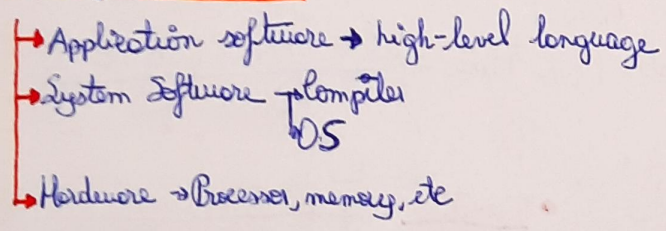 Application software → high-level language
System Software → Compiler
OS
Hardware → Processor, memory, etc